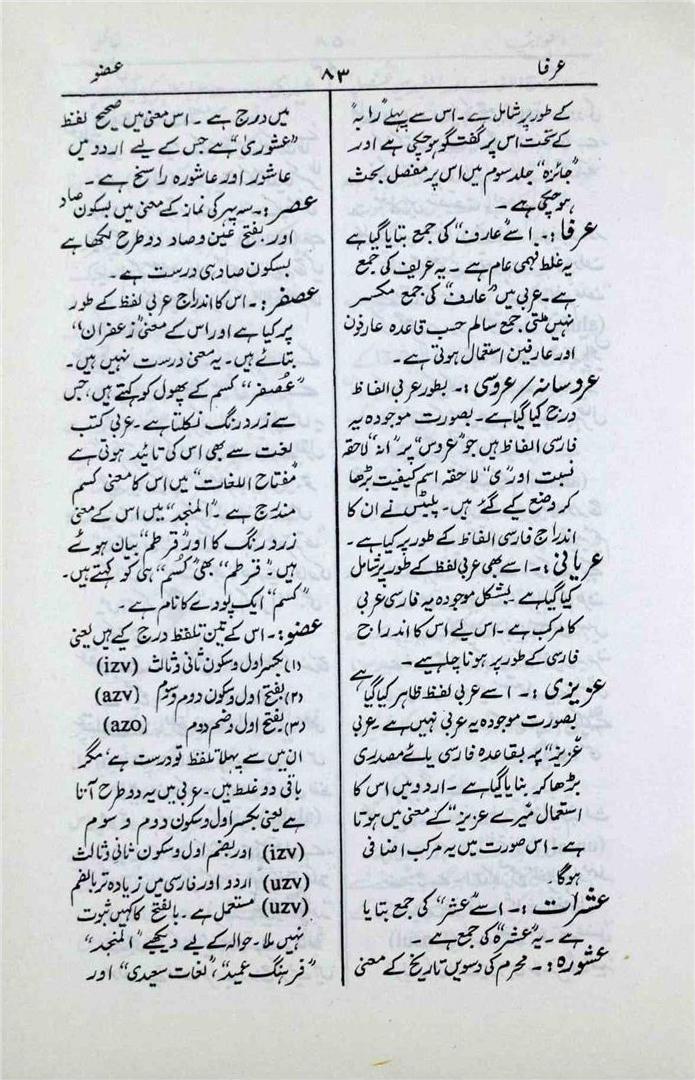 عرفا
۸۳
عضو
کے طور پر شامل ہے۔ اس سے پہلے "رابہ"
کے تحت اس پر گفتگو ہو چکی ہے اور
"جائزہ" جلد سوم میں اس پر مفصل بحث
ہو چکی ہے۔
عرفا:۔ اسے "عارف" کی جمع بتایا گیا ہے
یہ غلط فہمی عام ہے۔ یہ عریف کی جمع
ہے۔ عربی میں "عارف" کی جمع مکسر
نہیں ملتی جمع سالم حسب قاعدہ عارفون
اور عارفین استعمال ہوتی ہے۔
عروسانہ/عروسی:۔ بطور عربی الفاظ
درج کیا گیا ہے۔ بصورت موجودہ یہ
فارسی الفاظ ہیں جو "عروس" پر "انہ" لاحقہ
نسبت اور "ی" لاحقہ اسم کیفیت بڑھا
کر وضع کیے گئے ہیں۔ پلیٹس نے ان کا
اندراج فارسی الفاظ کے طور پر کیا ہے۔
عریانی:۔ اسے بھی عربی لفظ کے طور پر شامل
کیا گیا ہے۔ بشکل موجودہ یہ فارسی عربی
کا مرکب ہے۔ اس لیے اس کا اندراج
فارسی کے طور پر ہونا چاہیے۔
عزیزی:۔ اسے عربی لفظ ظاہر کیا گیا ہے
بصورت موجودہ یہ عربی نہیں ہے۔ عربی
"عزیز" پر بقاعدہ فارسی یائے مصدری
بڑھا کر بنایا گیا ہے۔ اردو میں اس کا
استعمال "میرے عزیز" کے معنی میں ہوتا
ہے۔ اس صورت میں یہ مرکب اضافی
ہوگا۔
عشرات:۔ اسے "عشر" کی جمع بتایا
ہے۔ یہ "عشرہ" کی جمع ہے۔
عشورہ:۔ محرم کی دسویں تاریخ کے معنی
میں درج ہے۔ اس معنی میں صحیح لفظ
"عشوریٰ" ہے جس کے لیے اردو میں
عاشور اور عاشورہ راسخ ہے۔
عصر:۔ سہ پہر کی نماز کے معنی میں بسکون صاد
اور بفتح عین و صاد دو طرح لکھا ہے
بسکون صاد ہی درست ہے۔
عصفر:۔ اس کا اندراج عربی لفظ کے طور
پر کیا ہے اور اس کے معنی "زعفران"
بتائے ہیں۔ یہ معنی درست نہیں ہیں۔
"عُصفر" کسم کے پھول کو کہتے ہیں، جس
سے زرد رنگ نکلتا ہے۔ عربی کتب
لغت سے بھی اس کی تائید ہوتی ہے
"مفتاح اللغات" میں اس کا معنی کسم
مندرج ہے۔ "المنجد" میں اس کے معنی
زرد رنگ کا اور "قرطم" بیان ہوئے
ہیں۔ "قرطم" بھی "کُسم" ہی کو کہتے ہیں۔
"کسم" ایک پودے کا نام ہے۔
عضو:۔ اس کے تین تلفظ درج کیے ہیں یعنی
(۱) بکسر اول و سکون ثانی و ثالث (izv)
(۲) بفتح اول و سکون دوم و سوم (azv)
(۳) بفتح اول و ضم دوم (azo)
ان میں سے پہلا تلفظ تو درست ہے، مگر
باقی دو غلط ہیں۔ عربی میں یہ دو طرح آتا
ہے یعنی بکسر اول و سکون دوم و سوم
(izv) اور بضم اول و سکون ثانی و ثالث
(uzv) اردو اور فارسی میں زیادہ تر بالضم
(uzv) مستعمل ہے۔ بالفتح کا کہیں ثبوت
نہیں ملا۔ حوالہ کے لیے دیکھیے "المنجد"
"فرہنگ عمید"، "لغات سعیدی" اور